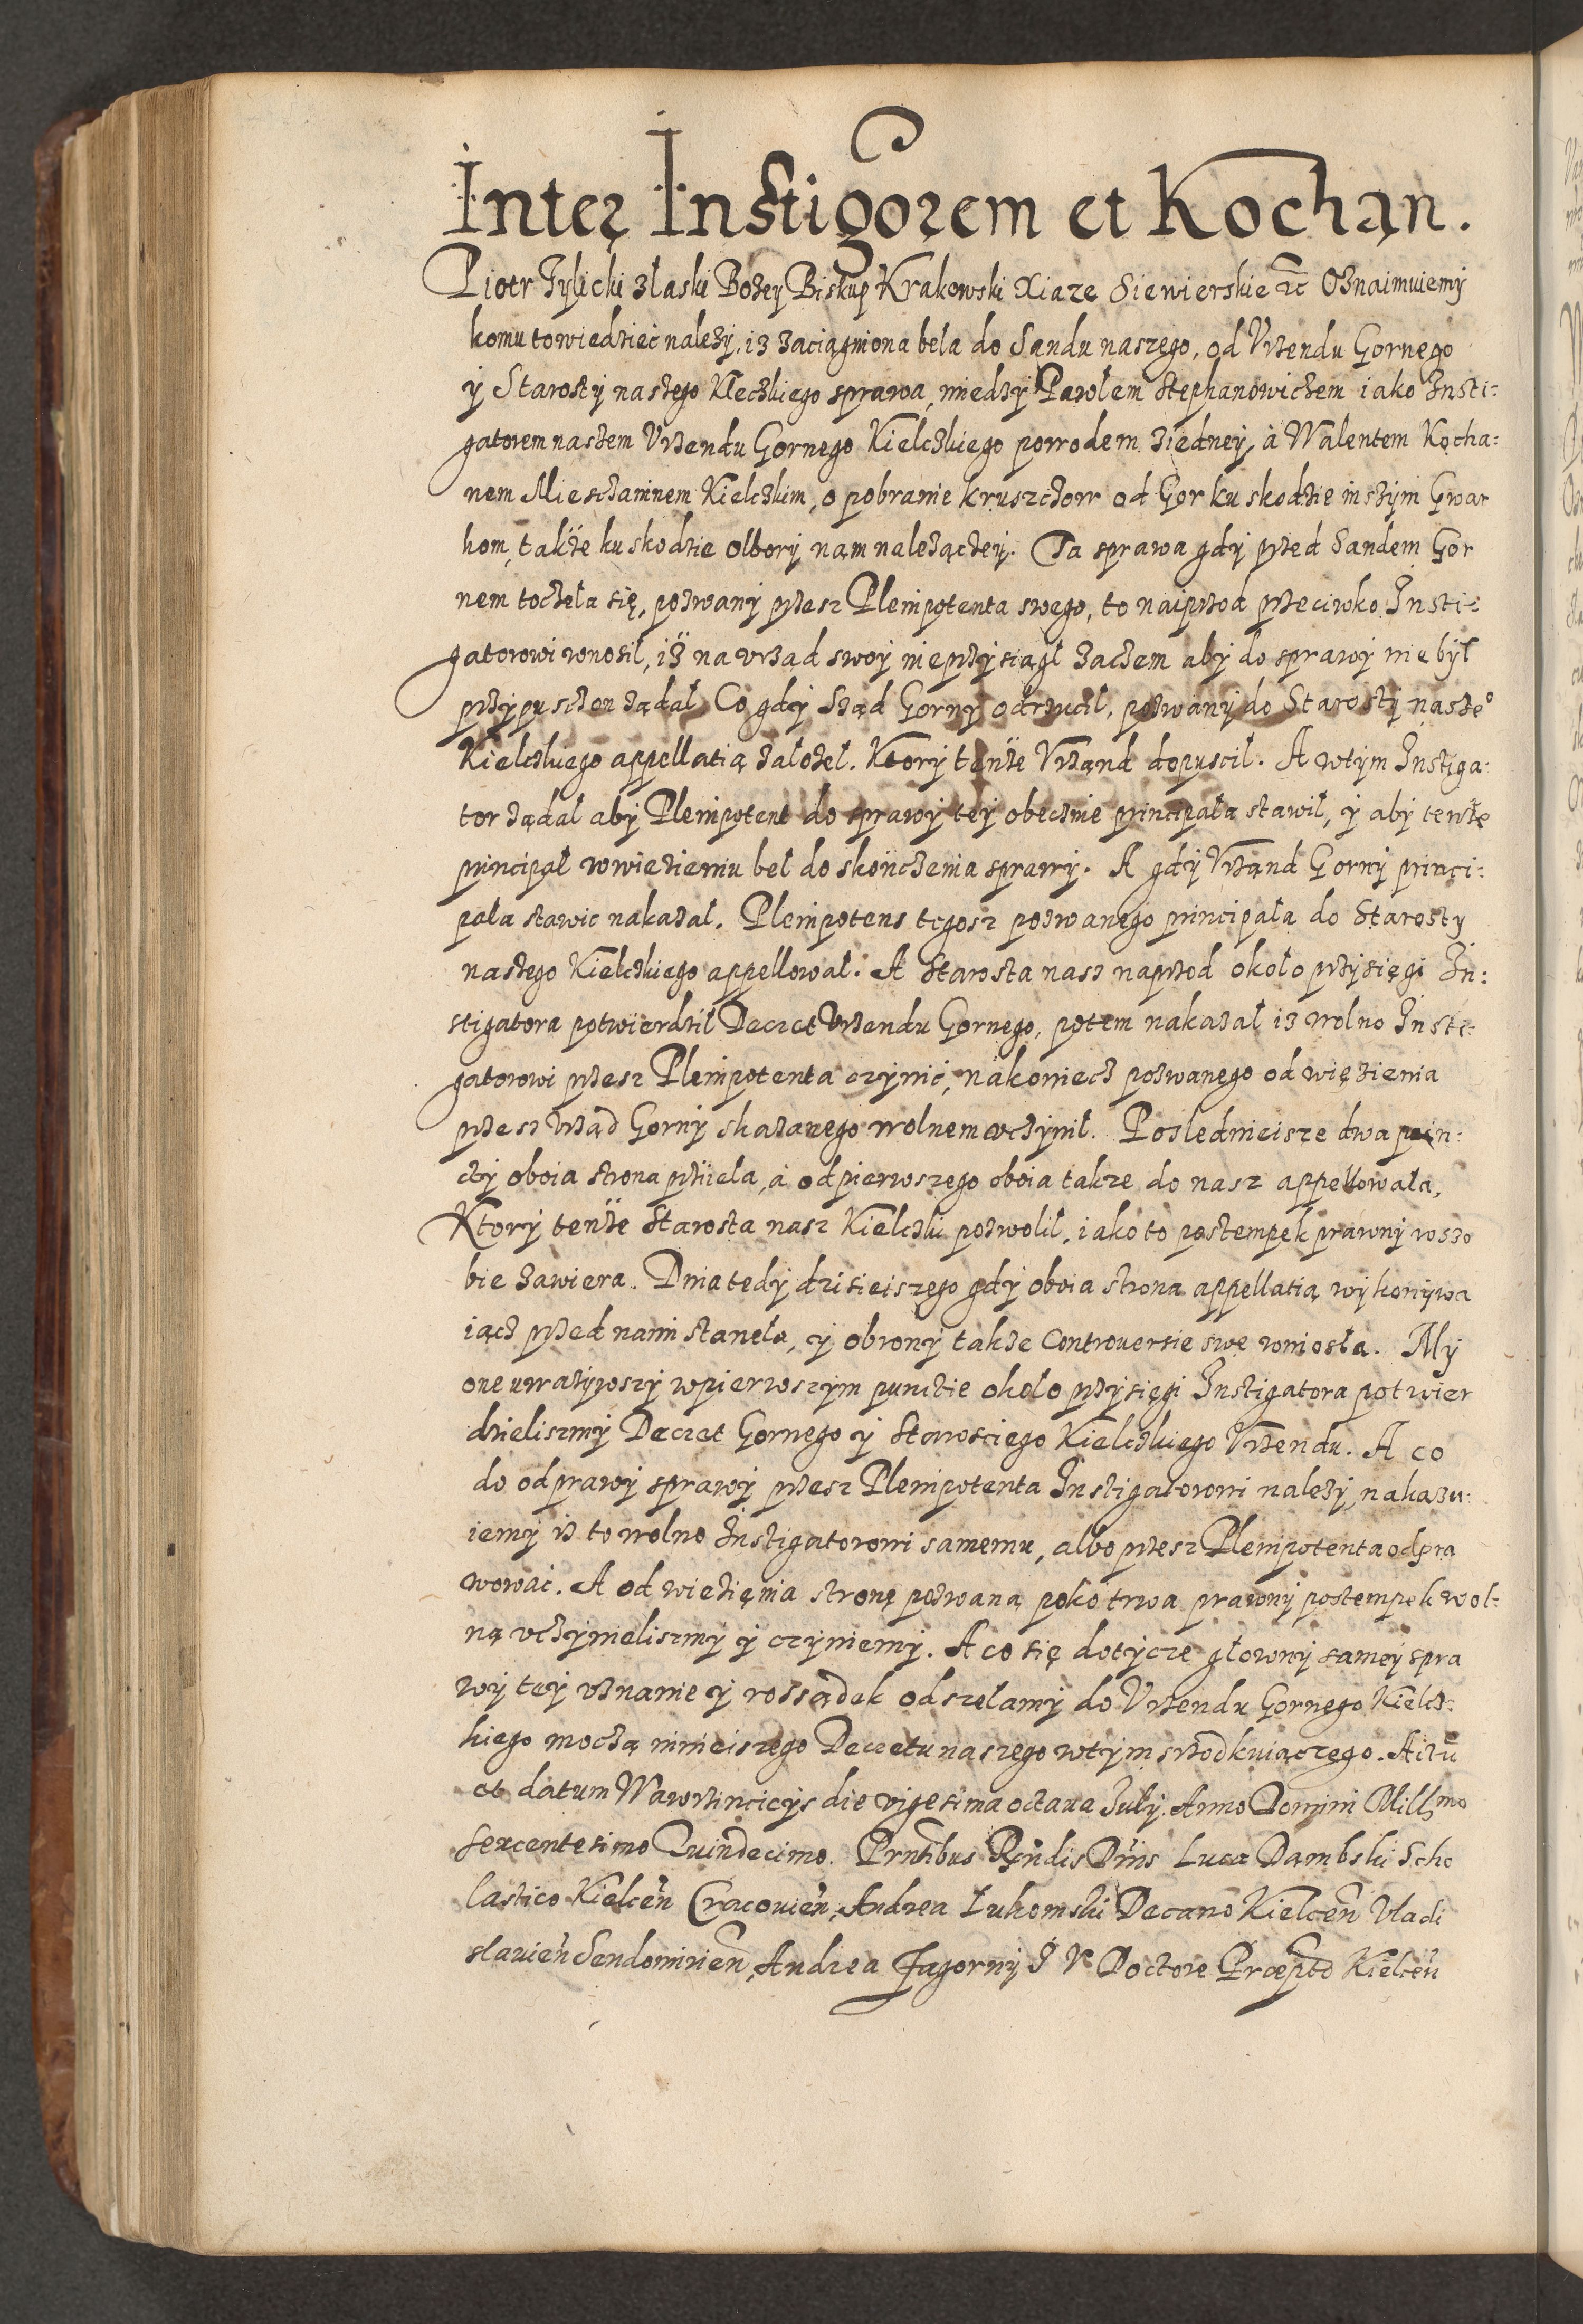 Inter Instigorem et Kochan.
Piotr Tylicki z łaski Bozey Biskup Krakowski Xiaze Siewierskie etc Oznaimuiemy
komu to wiedziec nalezy, iz zaciągniona beła do Sandu naszego, od Vrzendu Gornego
y Starosty naszego Kleczkiego sprawa, miedzy Pawlem Stephanowiczem iako Insti:
gatorem naszem Vrzendu Gornego Kielczkiego powodem ziedney, à Walentem Kocha:
nem Miesczaninem Kielczkim, o pobranie kruszczow od Gor ku skodzie inszym Gwar
kom, takze ku skodzie olbory nam nalezączey. Ta sprawa gdy przed Sandem Gor
nem toczeła się, pozwany przesz Plenipotenta swego, to naiprzod przeciwko Insti:
gatorowi wnosił, iz na vrząd swoy nieprzysiągł zaczem aby do sprawy nie był
przypusczon ządał, Co gdy Sząd Gorny odrzucił, pozwany do Starosty naszeo
Kielczkiego appellatią załozeł. Ktory tenze Vrzand dopuscil. A wtym Instiga:
tor ządał aby Plenipotent do sprawy tey obecznie principała stawił, y aby tenze
principał wwiezieniu beł do skonczenia sprawy. A gdy Vrzand Gorny princi:
pała stawic nakazał. Plenipotens tegosz pozwanego principała do Starosty
naszego Kielczkiego appellował. A Starosta nasz naprzod około przysięgi In:
stigatora potwierdził Decret Vrzendu Gornego, potem nakazał iz wolno Insti:
gatorowi przesz Plenipotenta czynić, nakoniecz pozwanego od więzienia
przesz Vrząd Gorny skazanego wolnem vczynił. Poslednieisze dwa pun:
cty oboia strona przieła, à od pierwszego oboia takze do nasz appellowała,
Ktory tenze Starosta nasz Kielczki pozwolił, iako to postempek prawny wszo
bie zawiera. Dnia tedy dzisieiszego gdy oboia strona appellatią wykonywa
iącz przed nami stanęła, y obrony takze Controuersie swe wniosła. My
one uwazywszy wpierwszym punctie około przysięgi Instigatora potwier
dzieliszmy Decret Gornego y Starosciego Kielczkiego Vrzendu. A co
do odprawy sprawy przesz Plenipotenta Instigatorowi nalezy, nakazu:
iemy iz to wolno Instigatorowi samemu, albo przesz Plenipotenta odpra
wować. A od wiezięnia stronę pozwaną poko trwa prawny postempek wol:
ną vczynieliszmy y czyniemy. A co się dotycze głowny samey spra
wy tey vznanie y rossądek odszełamy do Vrzendu Gornego Kielcz:
kiego moczą ninieiszego Decretu naszego wtym srzodkuiączego. Actu
et datum Wawrzincicys die vigesima octaua July. Anno Domini Millmo
sexcentesimo Quindecimo. Prntibus Rndis Dnis Luca Dambski Scho
lastico Kielcen Cracouien, Andrea Lukomski Decano Kielcen Vladi
slauien Sendomirien, Andrea Jagorny J V Doctore Præpto Kielcen